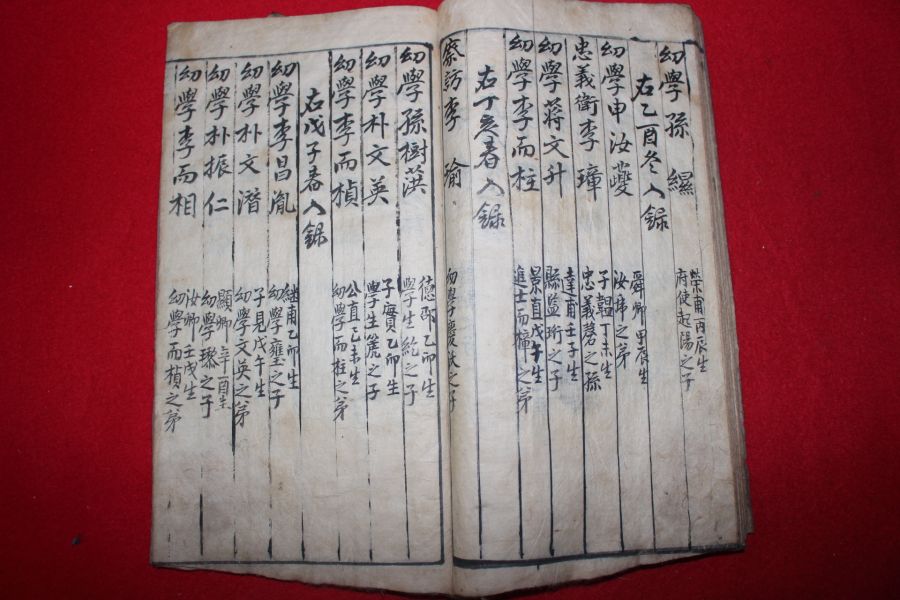 幼學孫 纙
榮甫丙辰生
府使起陽之子
右乙酉冬入録
幼學申汝
舜卿甲辰生
汝 之弟
忠義衛李 璋
子韞丁未生
忠義 之孫
幼學蔣文升
達甫壬子生
縣監珩之子
幼學李而柱
景直戊午生
進士而樟之弟
右丁亥春入録
察訪李 瑜
幼學慶 之子
幼學孫樹
德 乙卯生
學生紇之子
幼學朴文英
子實乙卯生
學生篪之子
幼學李而楨
公直乙未生
幼學而柱之弟
右戊子春入録
幼學李昌胤
繼甫乙卯生
幼學 之子
幼學朴文潛
子見戊午生
幼學文英之弟
幼學朴振仁
顯卿辛酉生
幼學 之子
幼學李而相
汝卿壬戌生
幼學而楨之弟